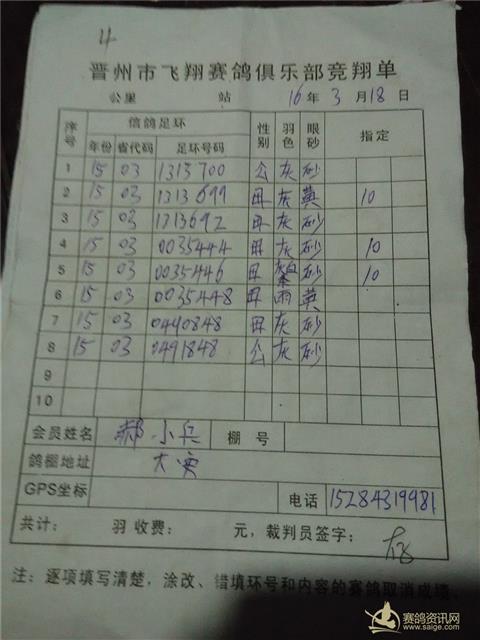 4
晋州市飞翔赛鸽俱乐部竞翔单
公里 站 16年3月18日
序号 信鸽足环 性别 羽色 眼砂 指定
年份 省代码 足环号码
1 15 03 1313700 公 灰 砂
2 15 03 1313699 母 灰 黄 10
3 15 03 1313692 母 灰 砂
4 15 03 0035444 母 灰 砂 10
5 15 03 0035446 母 砂 10
6 15 03 0035448 母 雨 黄
7 15 03 0490848 母 灰 砂
8 15 03 0491848 公 灰 砂
9
10
会员姓名 郝小兵 棚号
鸽棚地址
GPS坐标 电话 15284319981
共计: 羽 收费: 元,裁判员签字:
注:逐项填写清楚,涂改、错填环号和内容的赛鸽取消成绩。
赛鸽资讯网
www.saige.com